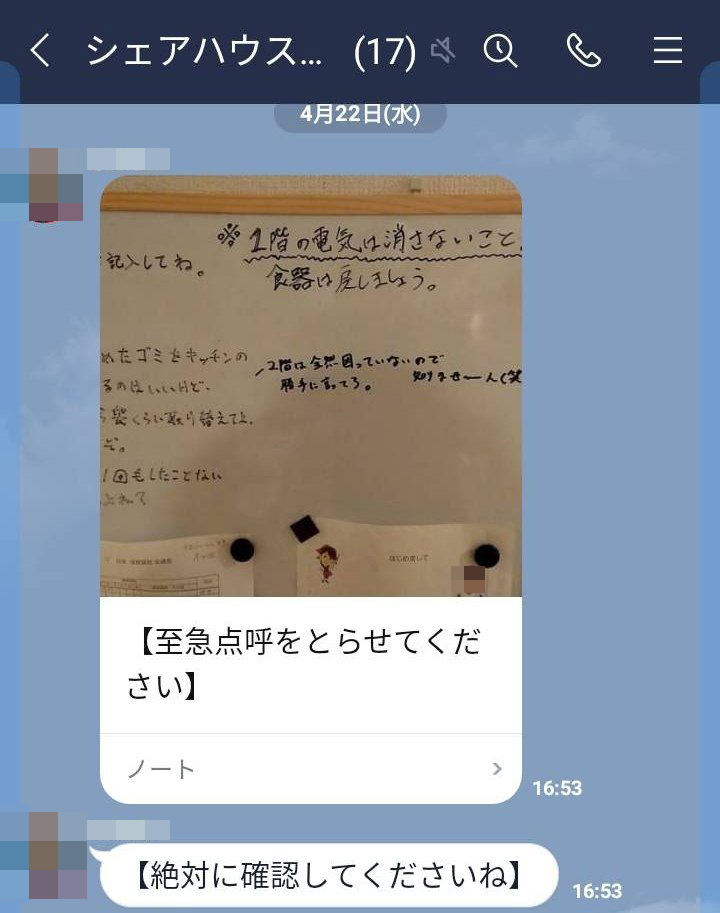 シェアハウス… (17)
4月22日(水)
※ 1階の電気は消さないこと
記入してね。
食器は戻しましょう。
めたゴミをキッチンの
るのはいいけど、
2階は全然困っていないので
勝手に言ってろ。 知りませーん(笑
袋くらい取り替えてよ。
ぞ。
1回もしたことない
はじめまして
【至急点呼をとらせてくだ
さい】
ノート
16:53
【絶対に確認してくださいね】
16:53